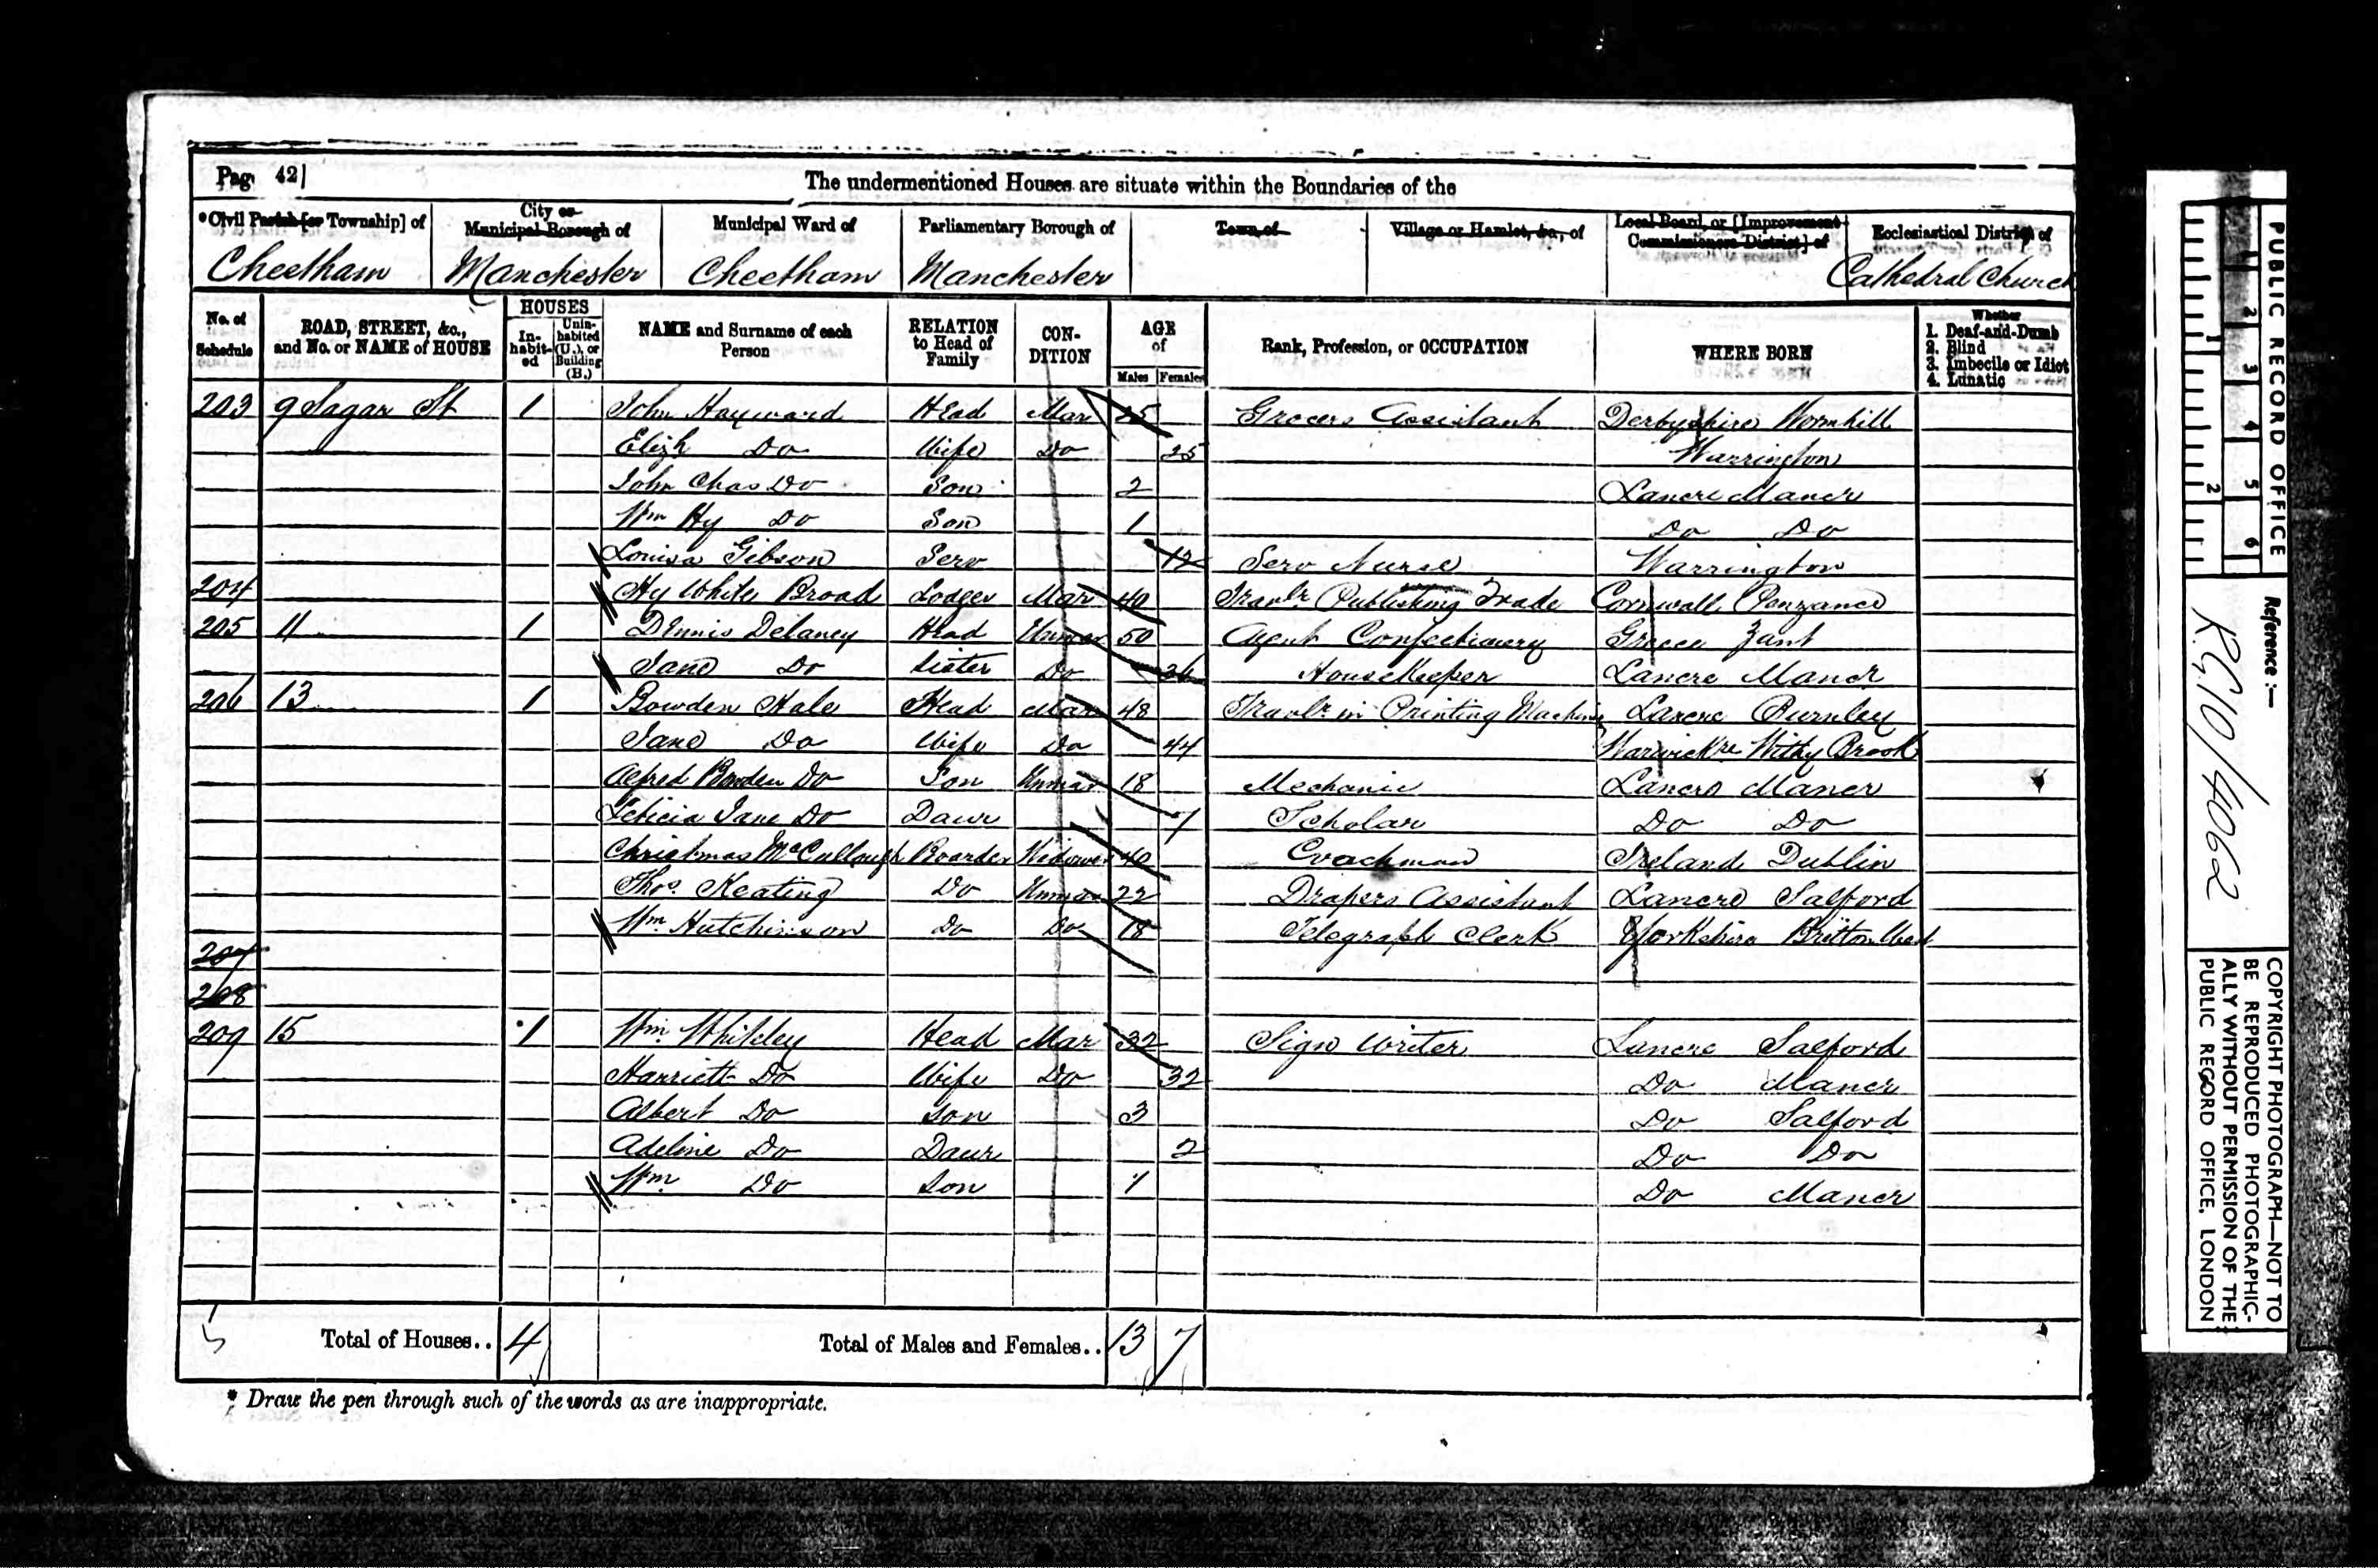 Page 42
The undermentioned Houses are situate within the Boundaries of the
*Civil Parish [or Township] of
City or Municipal Borough of
Municipal Ward of
Parliamentary Borough of
Town of
Village or Hamlet, &c., of
Local Board, or [Improvement Commissioners District] of
Ecclesiastical District of
Cheetham Manchester Cheetham Manchester Cathedral Church
No. of Schedule
ROAD, STREET, &c., and No. or NAME of HOUSE
HOUSES
Inhabited
Uninhabited (U.), or Building (B.)
NAME and Surname of each Person
RELATION to Head of Family
CONDITION
AGE of
Males Females
Rank, Profession, or OCCUPATION
WHERE BORN
Whether
1. Deaf-and-Dumb
2. Blind
3. Imbecile or Idiot
4. Lunatic
203 9 Sagar St 1 John Hayward Head Mar 25 Grocers Assistant Derbyshire Wormhill
Elizh Do Wife Do 25 Warrington
John Chas Do Son 2 Lancre Mancr
Wm Hy Do Son 1 Do Do
Louisa Gibson Serv 12 Serv Nurse Warrington
204 Hy White Broad Lodger Mar 40 Travlr Publishing Trade Cornwall Penzance
205 11 1 Dennis Delaney Head Unmar 50 Agent Confectionery Greece Zant
Jane Do Sister Do 36 HouseKeeper Lancre Mancr
206 13 1 Bowden Hale Head Mar 48 Travlr in Printing Machine Lancre Burnley
Jane Do Wife Do 44 Warwickre Withy Brook
Alfred Bowden Do Son Unmar 18 Mechanic Lancre Mancr
Leticia Jane Do Daur 7 Scholar Do Do
Christmas McCullough Boarder Widower 40 Coachman Ireland Dublin
Thos. Keating Do Unmar 22 Drapers Assistant Lancre Salford
Wm. Hutchinson Do Do 18 Telegraph Clerk Yorkshire
207
208
209 15 1 Wm. Whiteley Head Mar 32 Sign Writer Lancre Salford
Harriett Do Wife Do 32 Do Mancr
Albert Do Son 3 Do Salford
Adeline Do Daur 2 Do Do
Wm Do Son 1 Do Mancr
Total of Houses.. 4 Total of Males and Females.. 13 7
* Draw the pen through such of the words as are inappropriate.
PUBLIC RECORD OFFICE
1 2 3 4 5 6
1 2
Reference :—
R.G. 10/4062
COPYRIGHT PHOTOGRAPH—NOT TO
BE REPRODUCED PHOTOGRAPHIC-
ALLY WITHOUT PERMISSION OF THE
PUBLIC RECORD OFFICE, LONDON